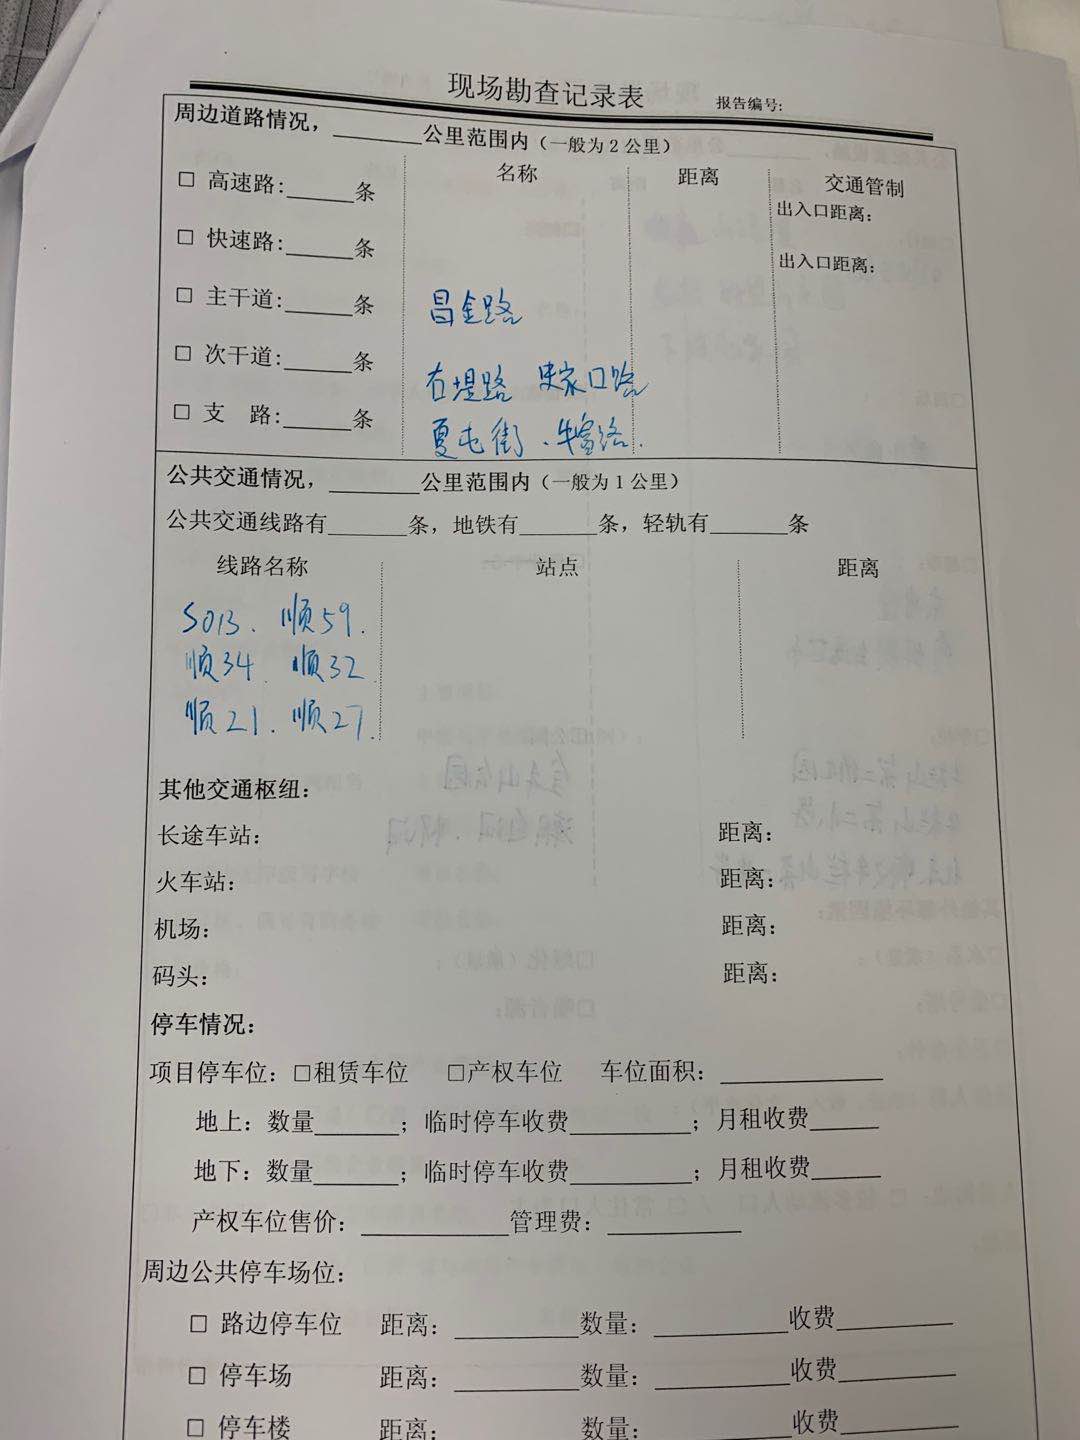 现场勘查记录表
报告编号:
周边道路情况，______公里范围内（一般为2公里）
名称 距离 交通管制
□ 高速路:______条 出入口距离：
□ 快速路:______条 出入口距离：
□ 主干道:______条 昌金路
□ 次干道:______条 右堤路 史家口路
□ 支 路:______条 夏屯街、牛富路.
公共交通情况，______公里范围内（一般为1公里）
公共交通线路有______条，地铁有______条，轻轨有______条
线路名称 站点 距离
S013、顺59.
顺34 顺32
顺21、顺27.
其他交通枢纽：
长途车站： 距离：
火车站： 距离：
机场： 距离：
码头： 距离：
停车情况：
项目停车位：□租赁车位 □产权车位 车位面积：____________
地上：数量______；临时停车收费_________；月租收费_____
地下：数量______；临时停车收费_________；月租收费_____
产权车位售价：___________管理费：__________
周边公共停车场位：
□ 路边停车位 距离：_________数量：__________收费________
□ 停车场 距离：_________数量：__________收费________
□ 停车楼 距离：_________数量：__________收费________